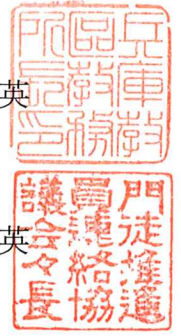 兵庫教
區教務
所長印
英
門徒推進
員連絡協
議会々長
英